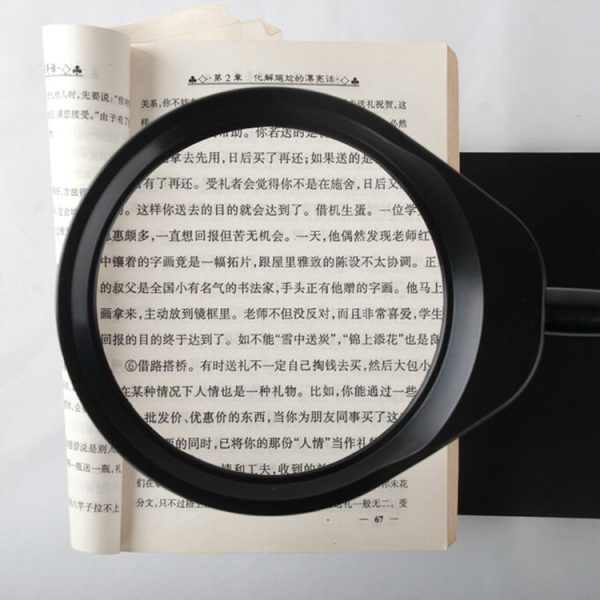 第2章 化解尴尬的漂亮话
给人时,先要说:“你
您接受。”由于有了
关系,你不妨
去送礼祝贺,这
样
必然
帮助。你若送的是
拿去先用,日后买了再还;如果送的是
有了再还。受礼者会觉得你不是在施舍,日后又
的。这样你送去的目的就会达到了。借机生蛋。一位学
恩惠颇多,一直想回报但苦无机会。一天,他偶然发现老师红
中镶着的字画竟是一幅拓片,跟屋里雅致的陈设不太协调。正
的叔父是全国小有名气的书法家,手头正有他赠的字画。他马上
画拿来,主动放到镜框里。老师不但没反对,而且非常喜爱,学生
回报的目的终于达到了。如不能“雪中送炭”,“锦上添花”也是良
⑥借路搭桥。有时送礼不一定自己掏钱去买,然后大包小
在某种情况下人情也是一种礼物。比如,你能通过一些
批发价、优惠价的东西,当你为朋友同事买了这
的同时,已将你的那份“人情”当作礼物
情和工夫,收到的
们在
你未花
分文,只不过搭上
送礼一般无二。受
方法
借说是别人
一瓶送一瓶,礼
竿子拉不上
— 67 —